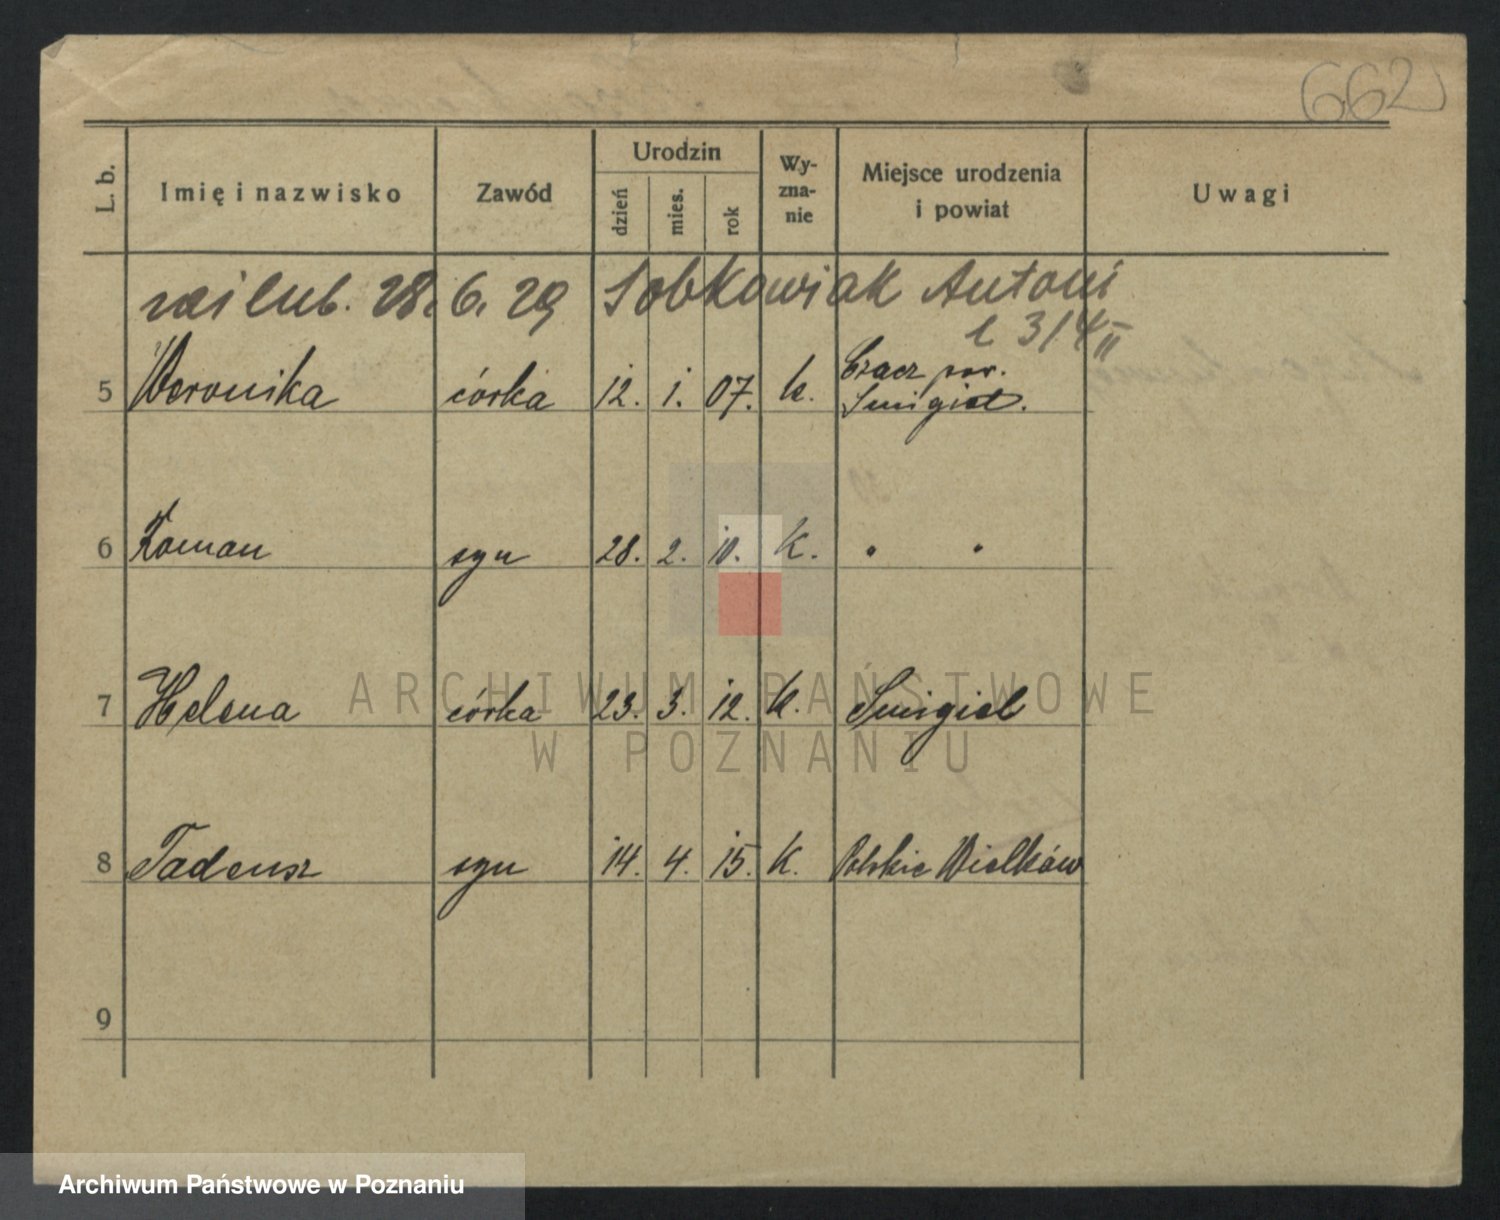 662
L. b.
Imię i nazwisko
Zawód
Urodzin
dzień
mies.
rok
Wy-
zna-
nie
Miejsce urodzenia
i powiat
Uwagi
zaślub. 28.6.29 Sobkowiak Antoni
l 3/4 II
5 Weronika córka 12. 1. 07. k. Czacz pow.
Śmigiel.
6 Roman syn 28. 2. 10. k. " "
7 Helena córka 23. 3. 12. k. Śmigiel
8 Tadeusz syn 14. 4. 15. k. Polskie Wielków
9
ARCHIWUM PAŃSTWOWE
W POZNANIU
Archiwum Państwowe w Poznaniu